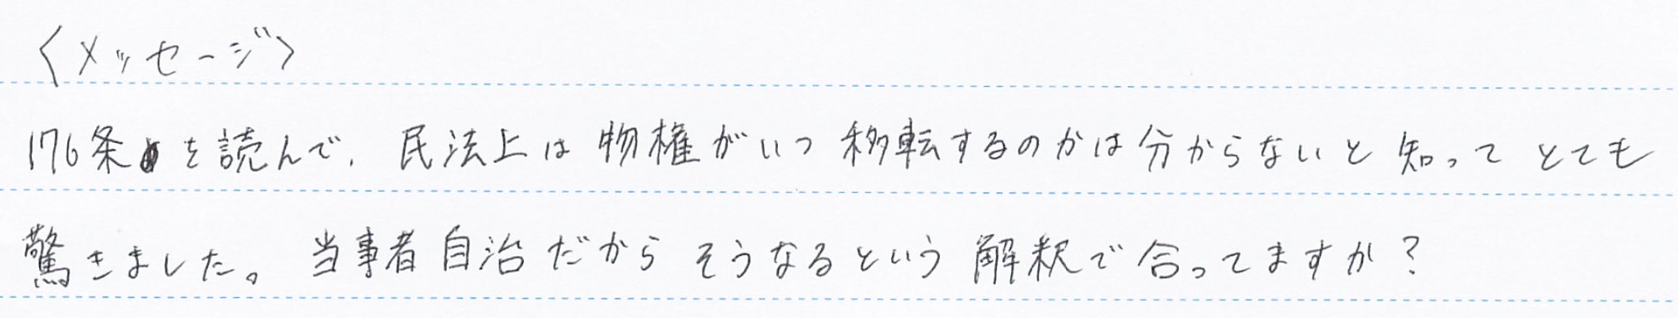 〈メッセージ〉
176条を読んで、民法上は物権がいつ移転するのかは分からないと知ってとても
驚きました。当事者自治だからそうなるという解釈で合ってますか?